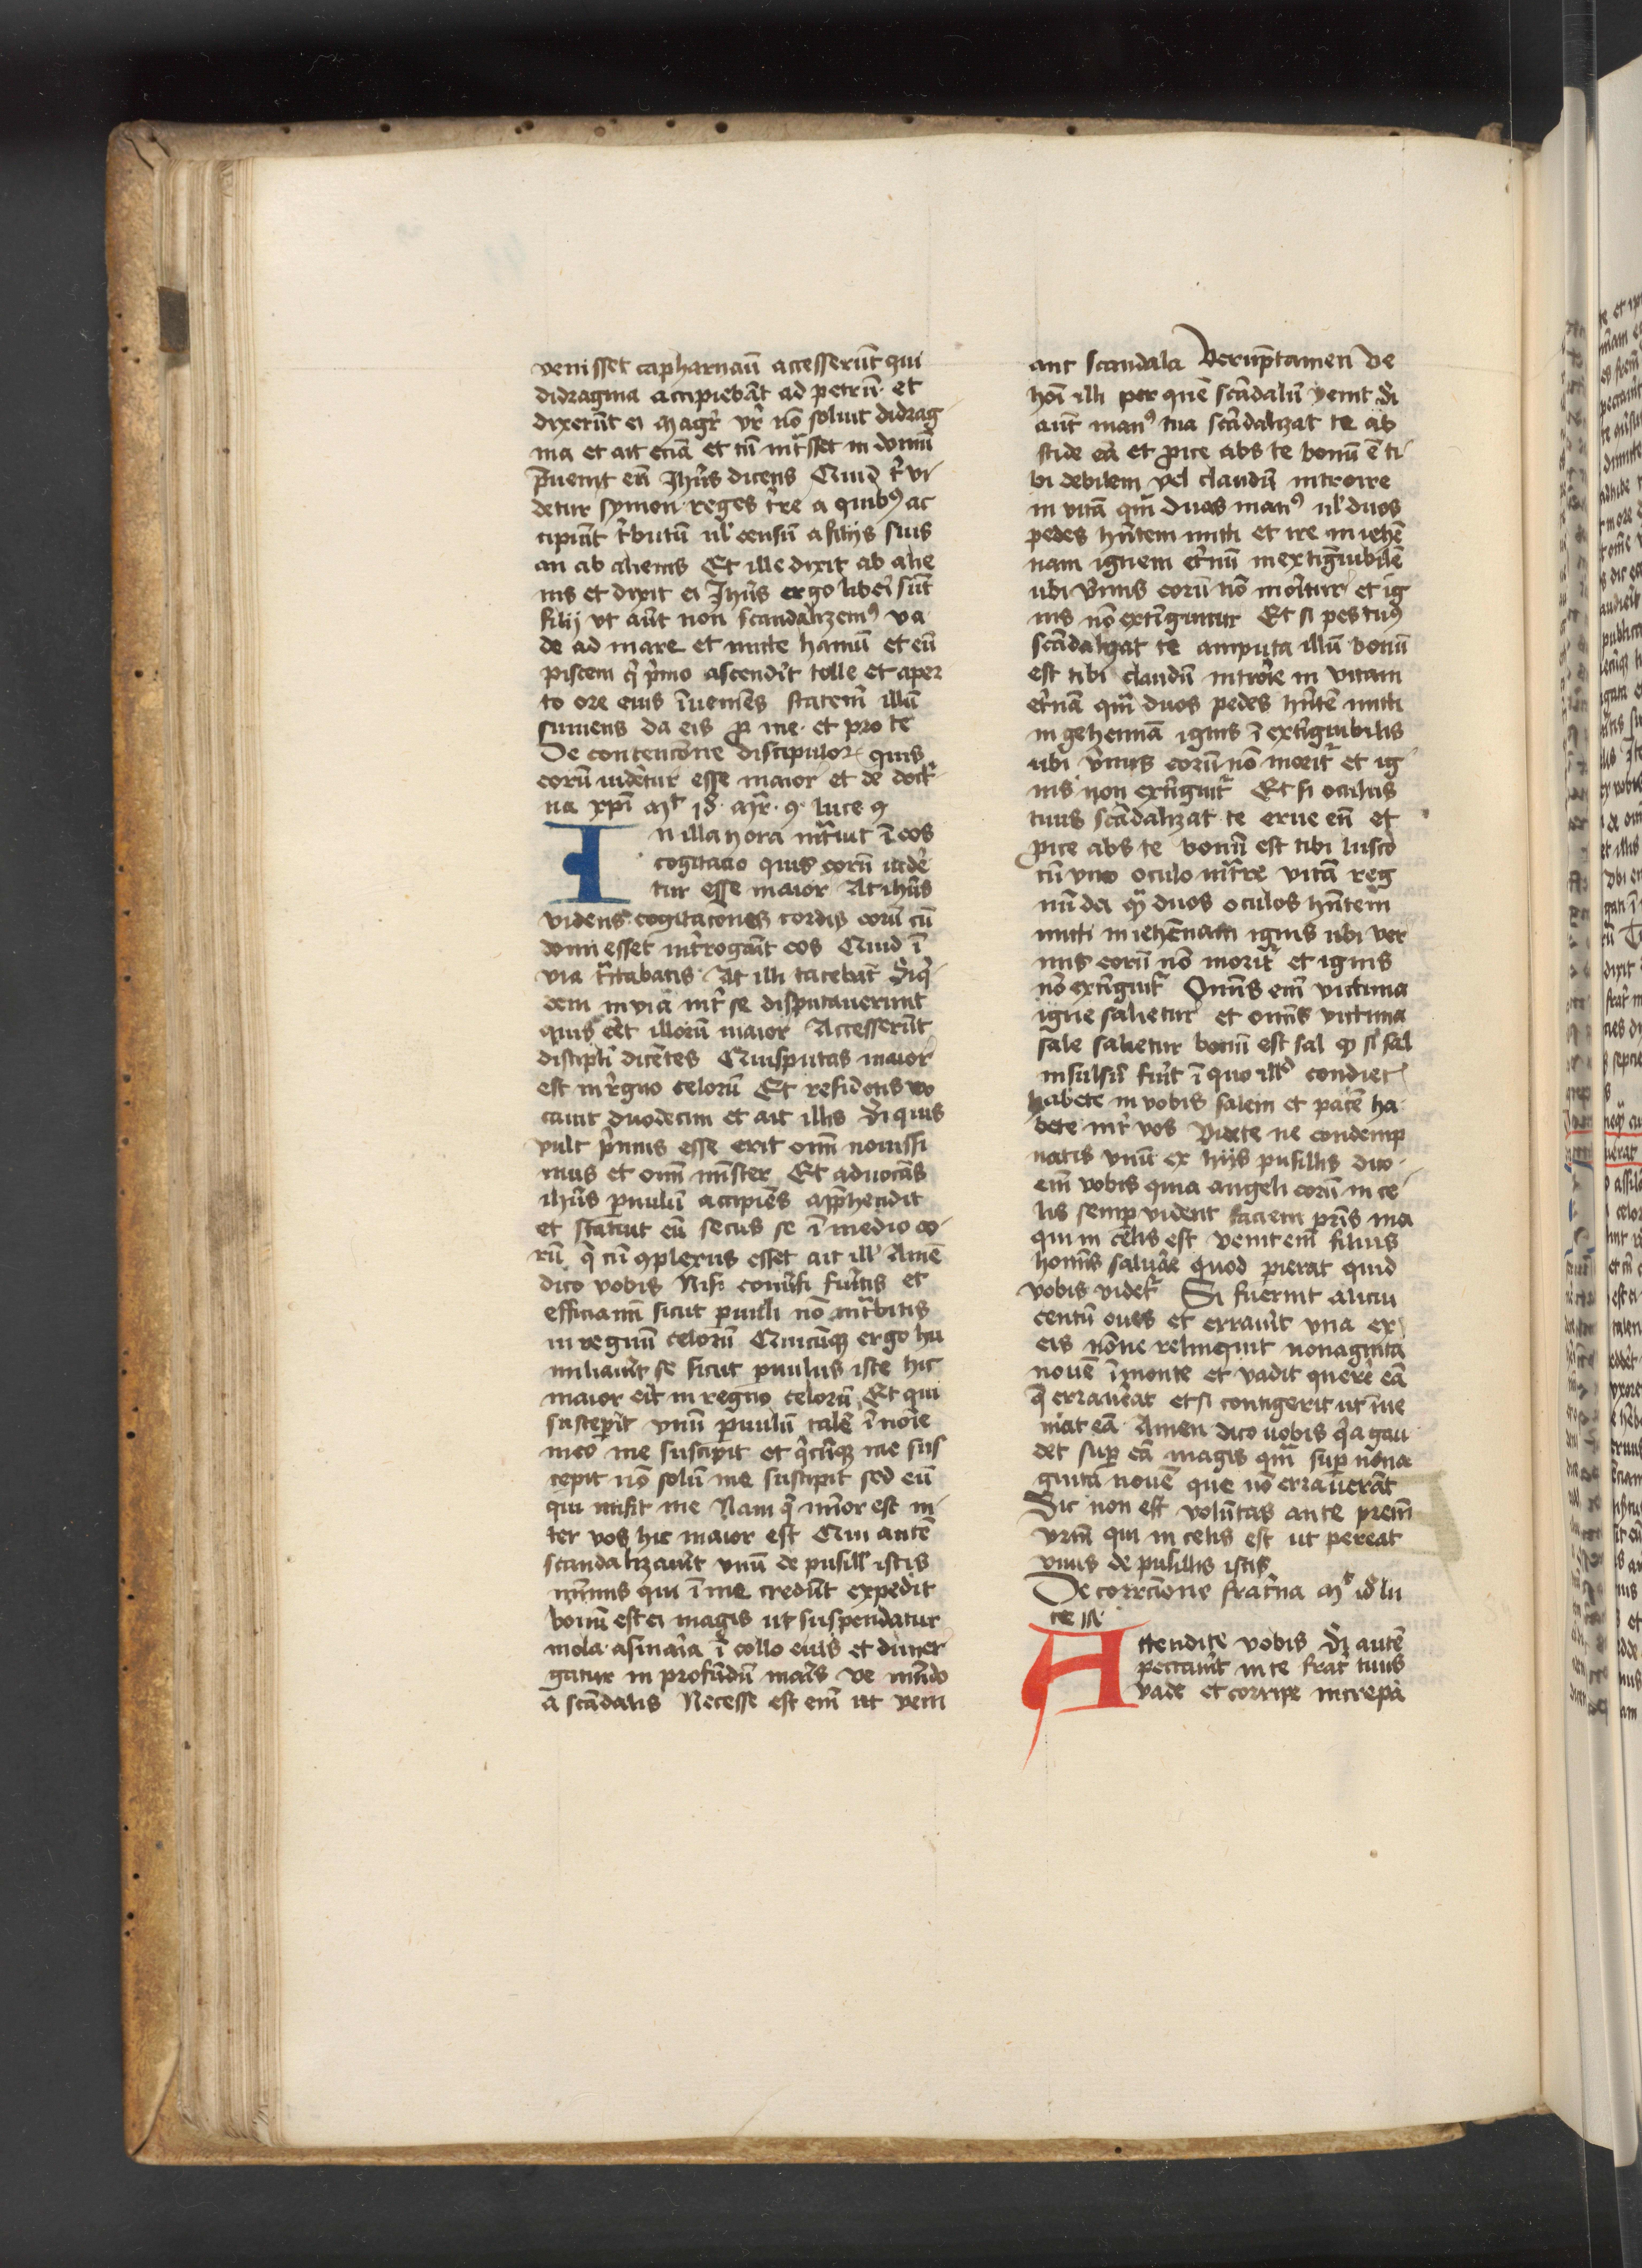 venisset capharnaū accesserūt qui
didragma accipiebāt ad petrū et
dixerūt ei Magr̄ vr̄ nō soluit didrag
ma et ait eciā et cū int̄sset in domū
p̄uenit eū Jhūs dicens Quid t' vi
detur symon reges t're a quibꝰ ac
cipiūt t'butū ul' censū a filijs suis
an ab alienis Et ille dixit ab alie
nis et dixit ei Jhūs ergo lib'i sūt
filij vt aūt non scandalizemꝰ va
de ad mare et mitte hamū et eū
piscem q' p'mo ascend'it tolle et aper
to ore eius īuenies stater̄m illū
sumens da eis ꝓ me et pro te
De contencōne discipulor̄ quis
eorū uideretur esse maior et de doct'
na xp̄i Mt 18 Mr̄ 9 luce 9
In illa hora int̄uit ī eos
cogitacio quis eorū uidē
tur esse maior At ihūs
videns cogitacōnes cordis eorū cū
domi esset int'rogauit eos Quid ī
via t̄ctabatis At illi tacebāt Siq̄
dem in via int' se disputauerunt
quis eēt illorū maior Accesserūt
discipl'i dicētes Quis putas maior
est in r'gno celorū Et residens vo
cauit duodecim et ait illis Si quis
vult p'mus esse erit om̄ nouissi
mus et om̄ mīster Et aduocās
ihūs p̄uulū accipiēs app̄hendit
et statuit eū secus se ī medio eo
rū q̄ cū ꝯplexus esset ait ill' Amē
dico vobis Nisi conu'si fu'itis et
efficiamī sicut p̄uuli nō int̄bitis
in regnū celorū Quicūqꝫ ergo hu
miliau'it se sicut p̄uulus iste hic
maior erit in regno celorū Et qui
suscep'it vnū p̄uulū talē ī noīe
meo me suscipit et q'cūqꝫ me sus
cepit nō solū me suscipit sed eū
qui misit me Nam q' mīor est in
ter vos hic maior est Qui autē
scandalizau'it vnū de pusill' istis
mīmis qui ī me credūt expedit
bonū est ei magis ut suspendatur
mola asinaria ī collo eius et dimer
gatur in profūdū maris ve mūdo
a scādalis Necesse est em̄ ut veni
ant scandala Verūptamen ve
hoī illi per quē scādalū venit Si
aūt manꝰ tua scādalizat te ab
scide eā et ꝓice abs te bonū ē ti
bi debilem vel claudū introire
in vitā qm̄ duas manꝰ ul' duos
pedes hn̄tem mitti et ire in iehē
nam ignem et'nū inextīguibilē
ubi v'mis eorū nō mōritur et ig
nis nō extīguitur Et si pes tuꝰ
scādalizat te amputa illū bonū
est tibi claudū introire in vitam
et'nā qm̄ duos pedes hn̄tē mitti
in gehennā ignis ī extīguibilis
ubi v'mis eorū nō morit' et ig
nis non extīguit' Et si oculus
tuus scādalizat te erue eū et
ꝓice abs te bonū est tibi lusco
cū vno oculo int̄re vitā reg
nū dei q̄ duos oculos hn̄tem
mitti in iehēnam ignis ubi ver
mis eorū nō morit' et ignis
nō extīguit' Omīs em̄ victima
igne salietur et omīs victima
sale salietur bonū est sal q̄ si sal
insulsū fu'it ī quo ill'd condiet'
habete in vobis salem et pacē ha
bete int' vos Videte ne condemp
natis vnū ex hijs pusillis dico
em̄ vobis quia angeli eorū in ce
lis semp vident faciem pr̄is mei
qui in celis est venit em̄ filius
homīs saluare quod pierat quid
vobis videt' Si fuerint alicui
centū oues et errau'it vna ex
eis nōne relinquit nonaginta
nouē ī monte et vadit querere eā
q̄ errau'eat et si contigerit ut īue
niat eā Amen dico uobis q'a gau
det sup eā magis qm̄ sup nona
ginta nouē que nō errauerāt
Sic non est volūtas ante pr̄em
vrm̄ qui in celis est ut pereat
vnus de pusillis istis
De corrcione frat'na Mt 18 lu
ce 17
Attendite vobis Si autē
peccau'it in te frat' tuus
vade et corripe increpa